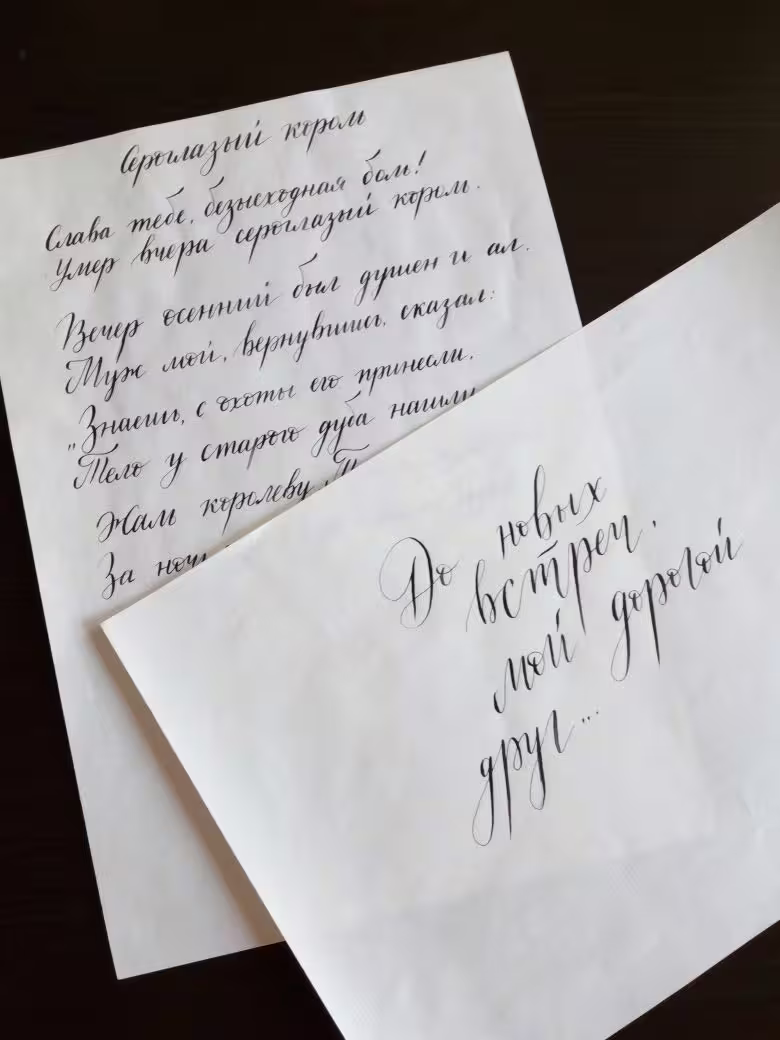 Сероглазый король
Слава тебе, безысходная боль!
Умер вчера сероглазый король.
Вечер осенний был душен и ал.
Муж мой, вернувшись, сказал:
„Знаешь, с охоты его принесли.
Тело у старого дуба нашли
Жаль королеву.
За ночь
До новых
встреч,
мой дорогой
друг...